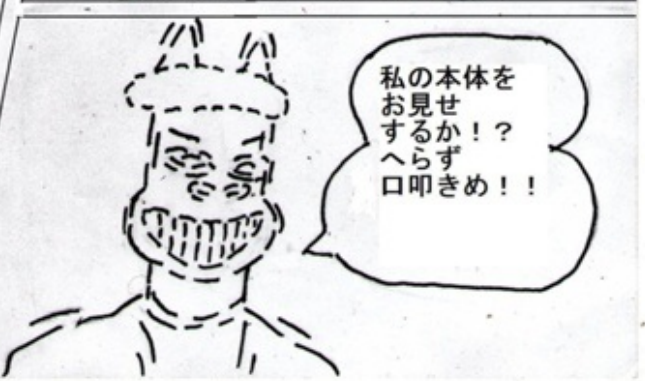 私の本体を
お見せ
するか！？
へらず
口叩きめ！！